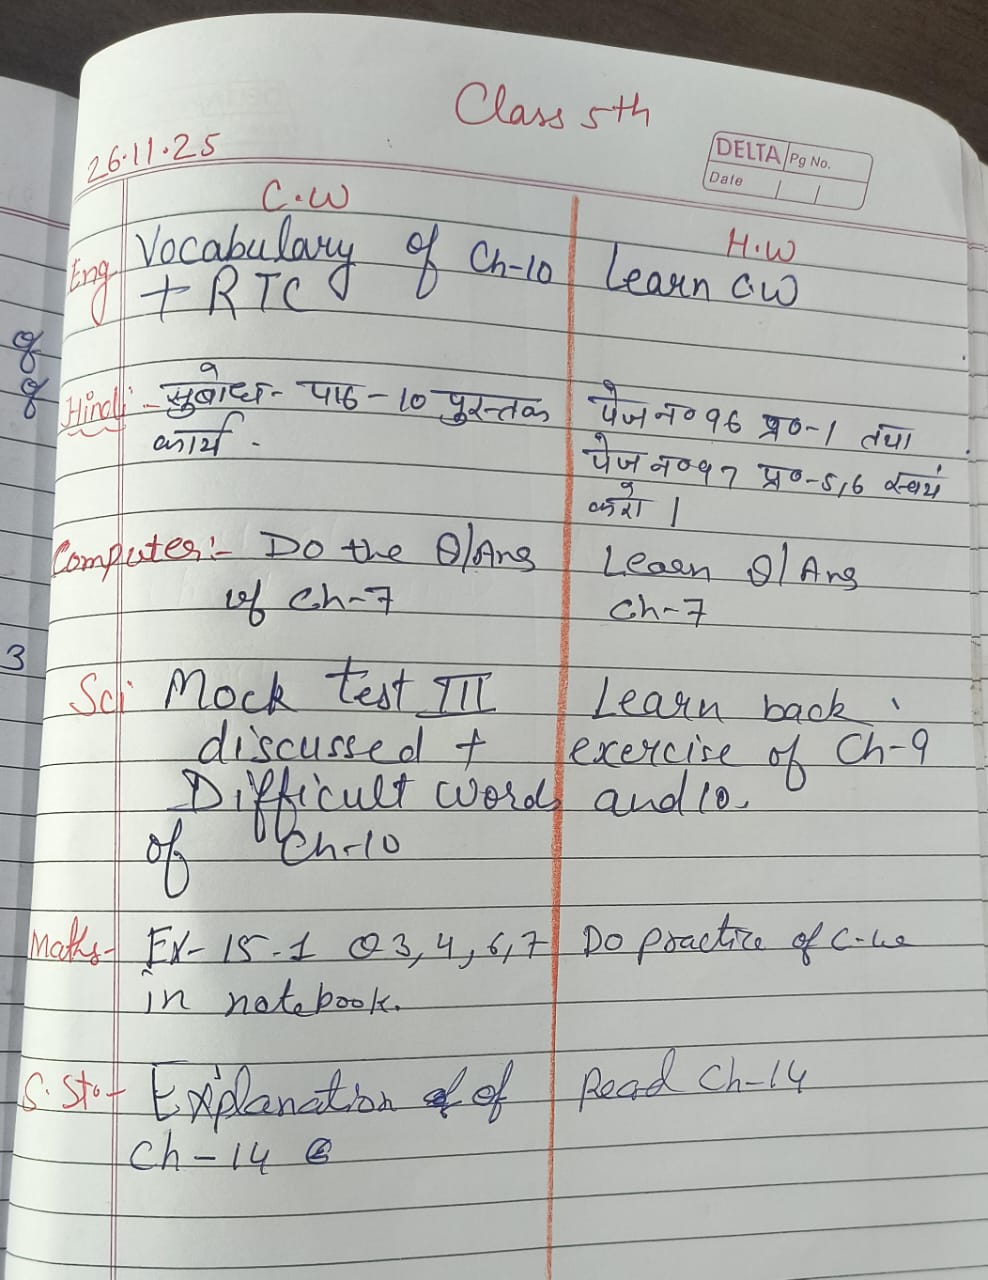 Class 5th
26.11.25
DELTA Pg No.
Date
C.W
H.W
Eng Vocabulary of Ch-10
+ RTC
Learn C.W
Hindi:- सुबोध- पाठ-10 पुस्तक
कार्य -
पेज न० 96 प्र०-1 तथा
पेज न० 97 प्र०-5,6 स्वयं
करो।
Computer:- Do the Q/Ans
of Ch-7
Learn Q/Ans
Ch-7
Sci Mock test III
discussed +
Difficult words
of Ch-10
Learn back
exercise of Ch-9
and 10.
Maths- Ex- 15.1 Q 3, 4, 6, 7
in notebook.
Do practice of C.w
S.St- Explanation of
Ch-14
Read Ch-14
3